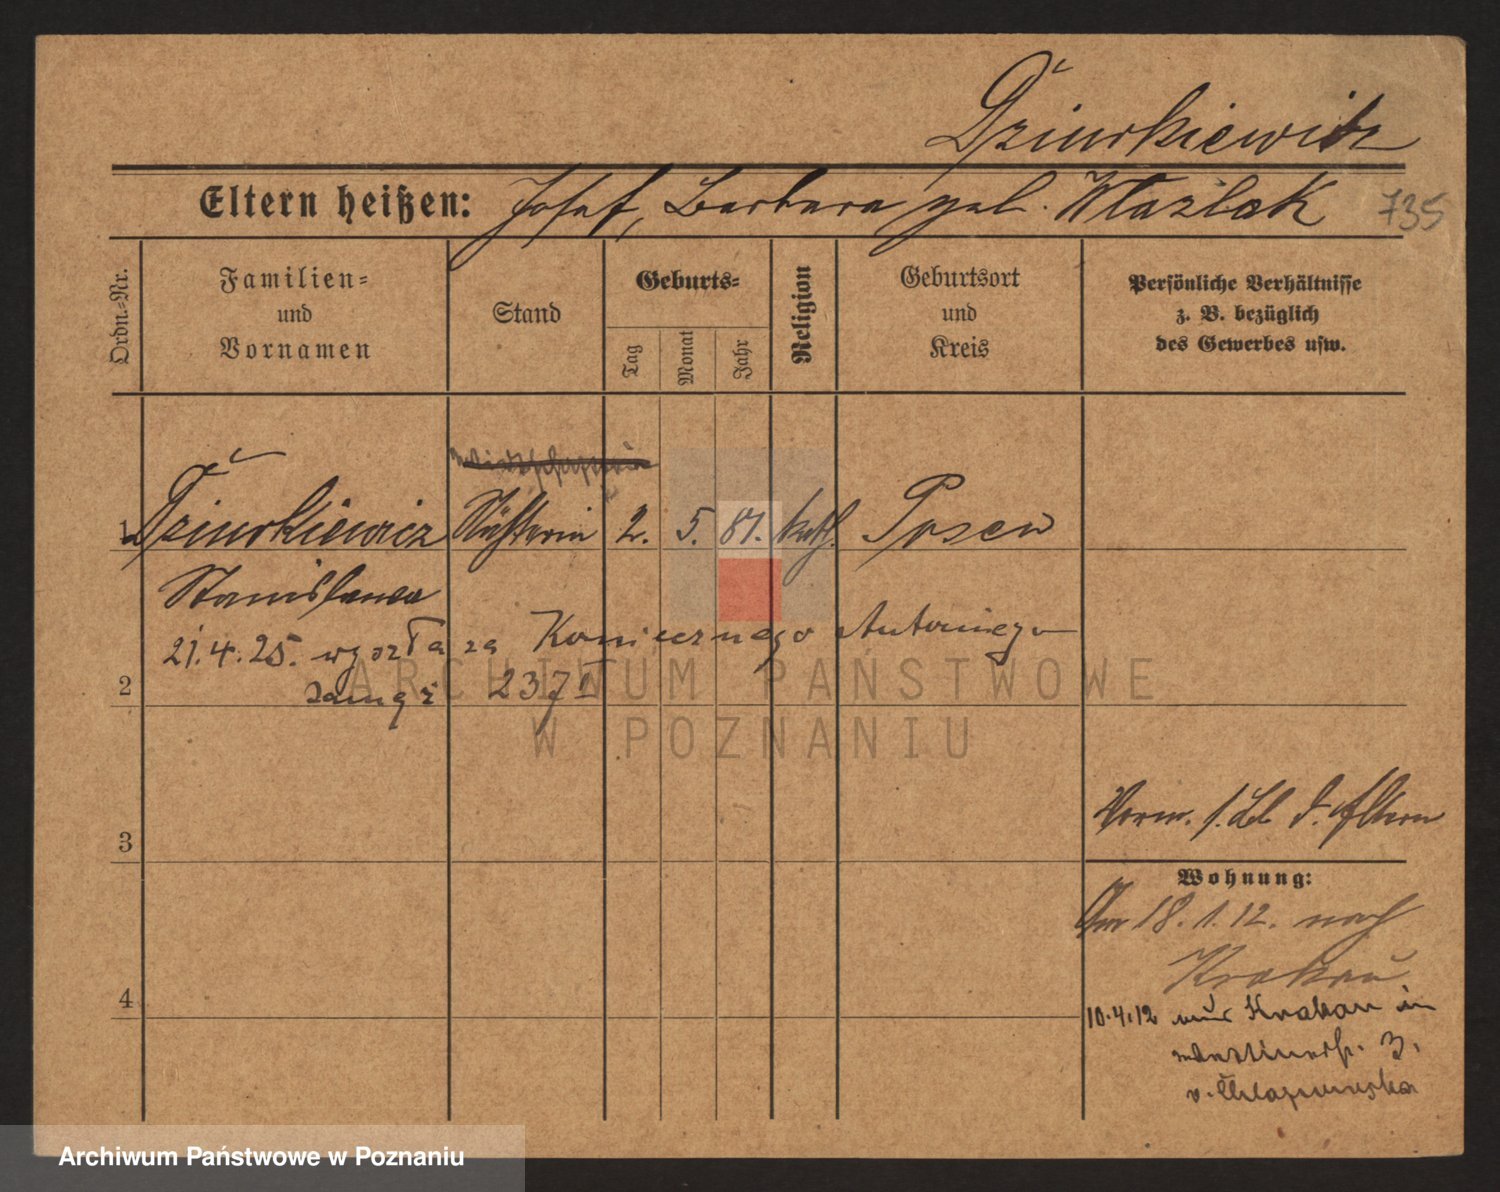 Dziurkiewicz
Eltern heißen: Josef, Barbara geb. Wlazlak 735
Ordn.-Nr.
Familien-
und
Vornamen
Stand
Geburts-
Tag
Monat
Jahr
Religion
Geburtsort
und
Kreis
Persönliche Verhältnisse
z. B. bezüglich
des Gewerbes usw.
1 Dziurkiewicz Nähterin 2. 5. 87. kath. Posen
Stanislawa
21.4.25. wyszła za Koniecznego Antoniego
2 237
ARCHIWUM PAŃSTWOWE
W POZNANIU
3
Vorm. s. Bl. d. Eltern
Wohnung:
Am 18.1.12. nach
Krakau
4
10.4.12 aus Krakau in
Martinstr. 3.
v. Chlapowska
Archiwum Państwowe w Poznaniu